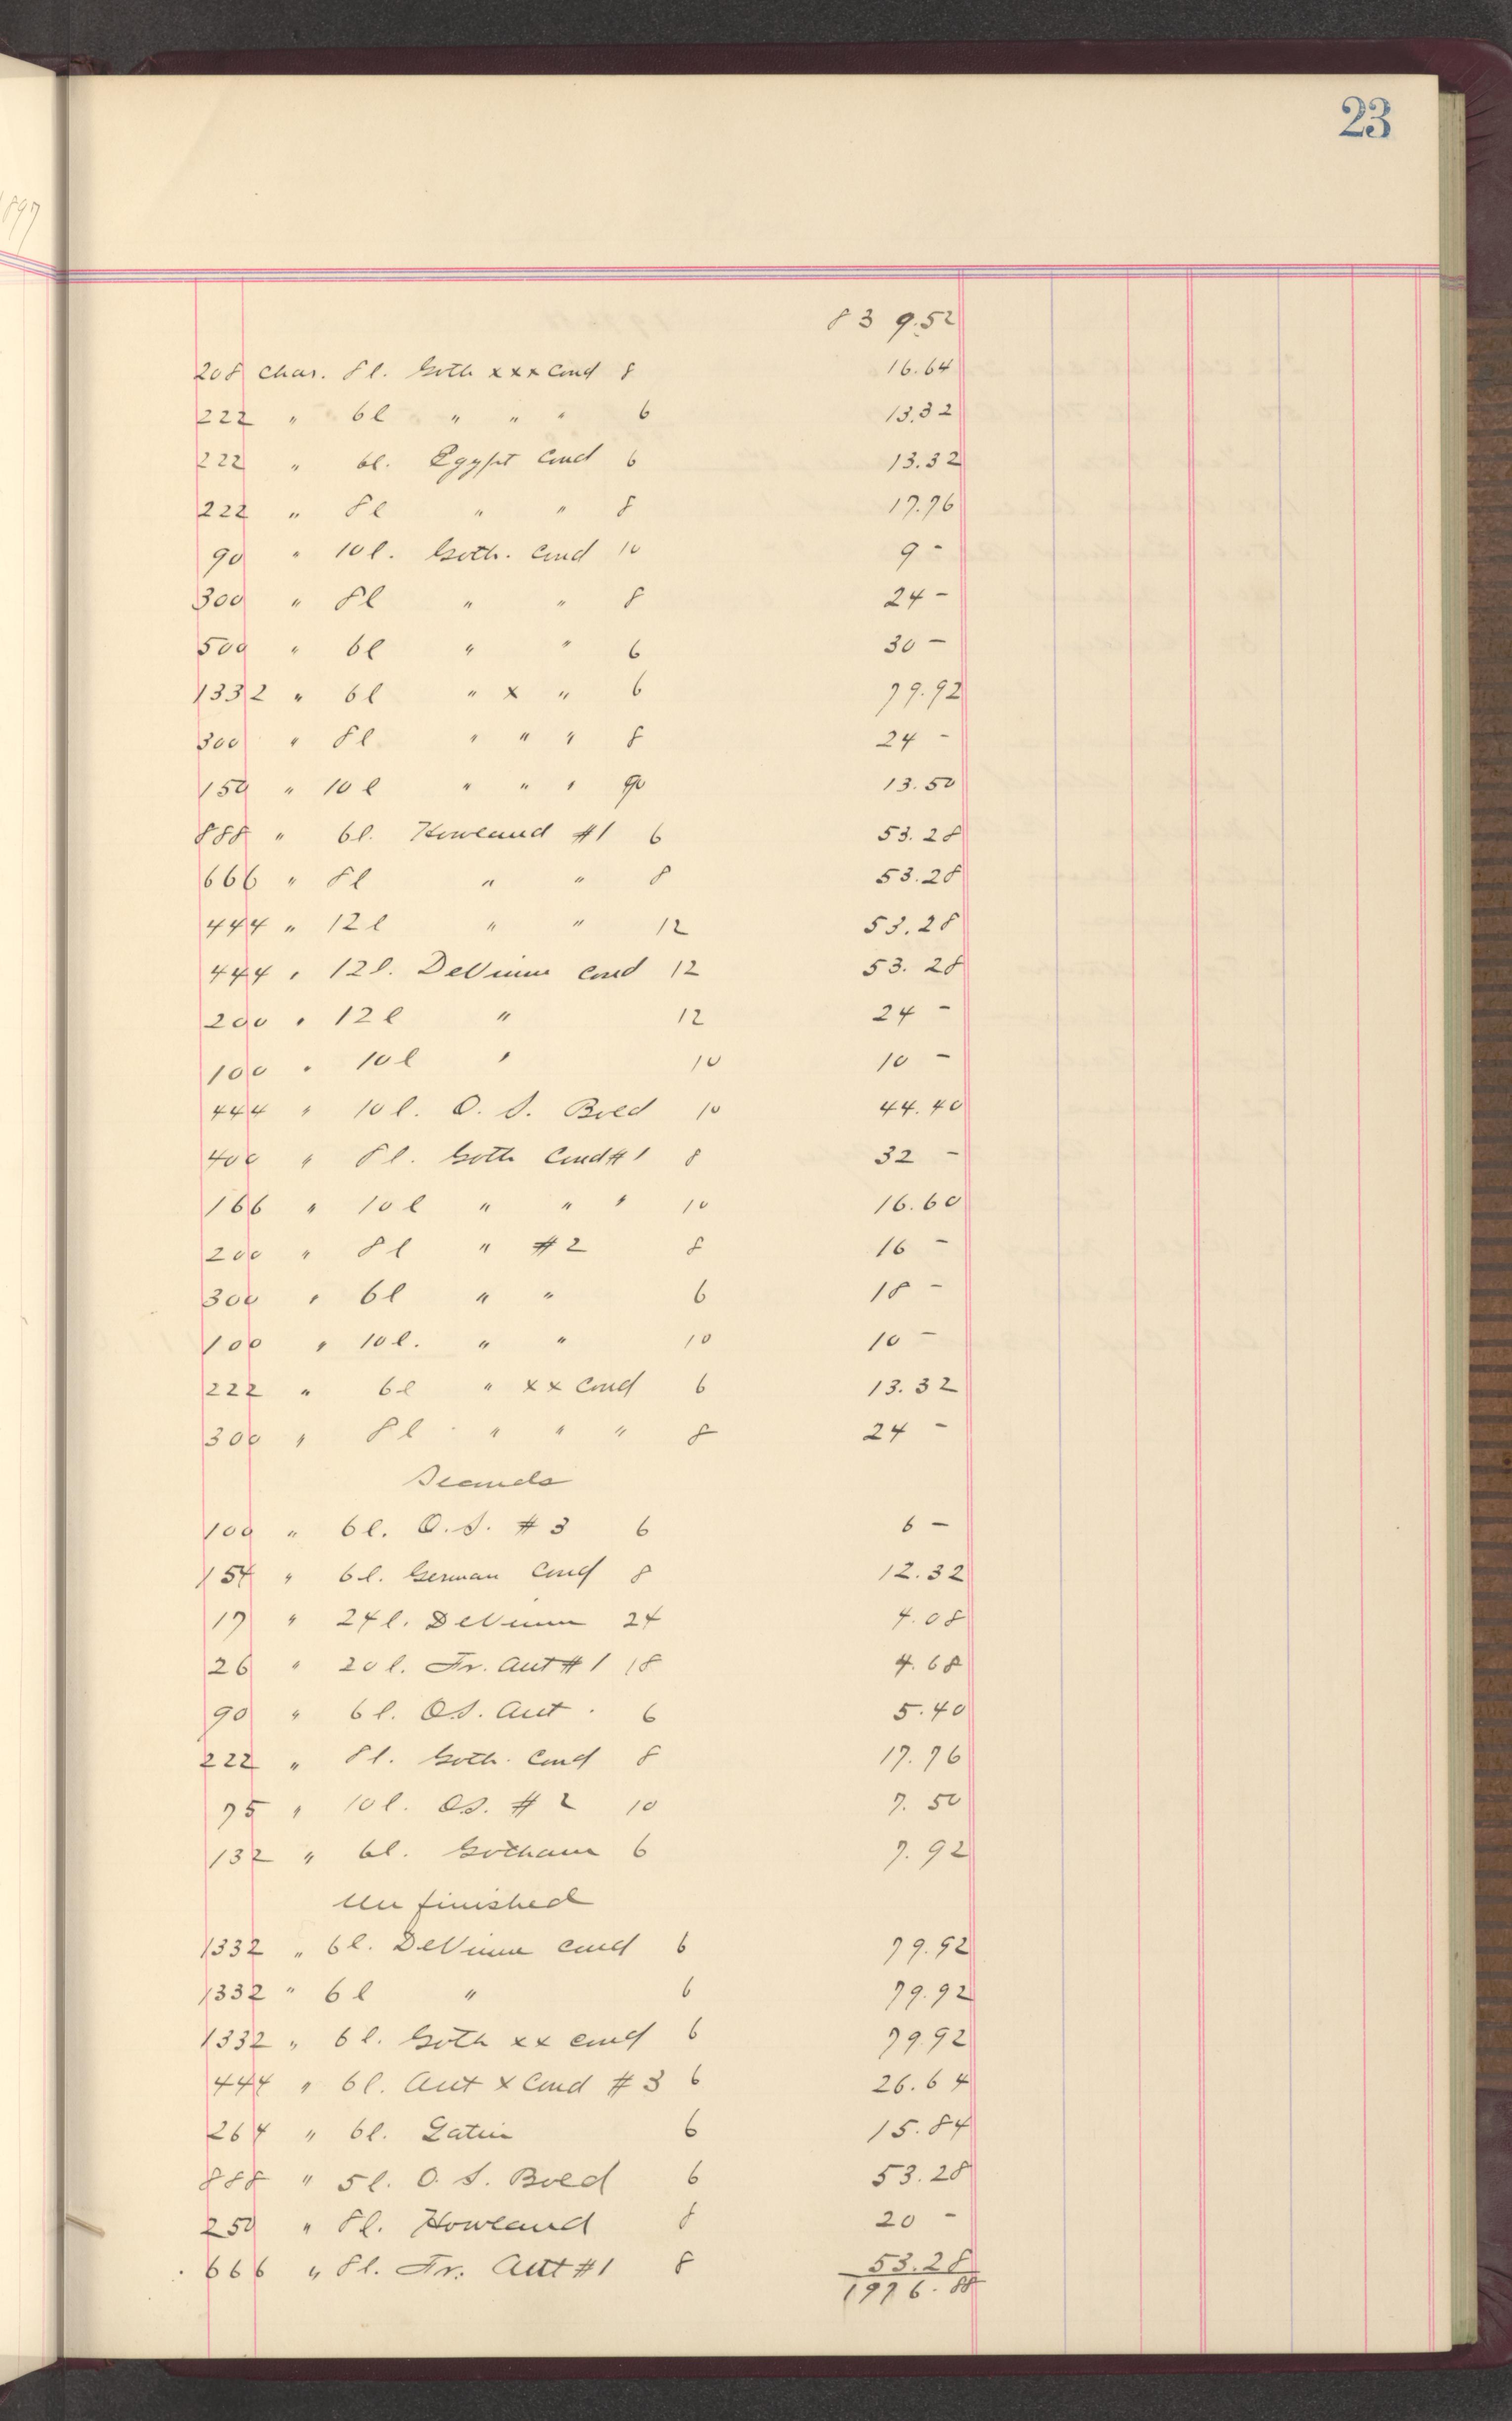 1897
23
839.52
208 Char. 8l. Goth xxx Cond 8 16.64
222 " 6l " " " 6 13.32
222 " 6l. Egypt Cond 6 13.32
222 " 8l " " 8 17.76
90 " 10l. Goth. Cond 10 9 -
300 " 8l " " 8 24 -
500 " 6l " " 6 30 -
1332 " 6l " x " 6 79.92
300 " 8l " " " 8 24 -
150 " 10l " " " 90 13.50
888 " 6l. Howland #1 6 53.28
666 " 8l " " 8 53.28
444 " 12l " " 12 53.28
444 " 12l. DeVinne Cond 12 53.28
200 " 12l " 12 24 -
100 " 10l " 10 10 -
444 " 10l. O. S. Bold 10 44.40
400 " 8l. Goth Cond #1 8 32 -
166 " 10l " " " 10 16.60
200 " 8l " #2 8 16 -
300 " 6l " " 6 18 -
100 " 10l. " " 10 10 -
222 " 6l " xx Cond 6 13.32
300 " 8l " " " 8 24 -
Seconds
100 " 6l. O.S. #3 6 6 -
154 " 6l. German Cond 8 12.32
17 " 24l. DeVinne 24 4.08
26 " 20l. Fr. Ant #1 18 4.68
90 " 6l. O.S. Ant. 6 5.40
222 " 8l. Goth. Cond 8 17.76
75 " 10l. O.S. #2 10 7.50
132 " 6l. Gotham 6 7.92
Unfinished
1332 " 6l. DeVinne Cond 6 79.92
1332 " 6l " 6 79.92
1332 " 6l. Goth xx Cond 6 79.92
444 " 6l. Ant x Cond #3 6 26.64
264 " 6l. Latin 6 15.84
888 " 5l. O. S. Bold 6 53.28
250 " 8l. Howland 8 20 -
666 " 8l. Fr. Ant #1 8 53.28
1976.88